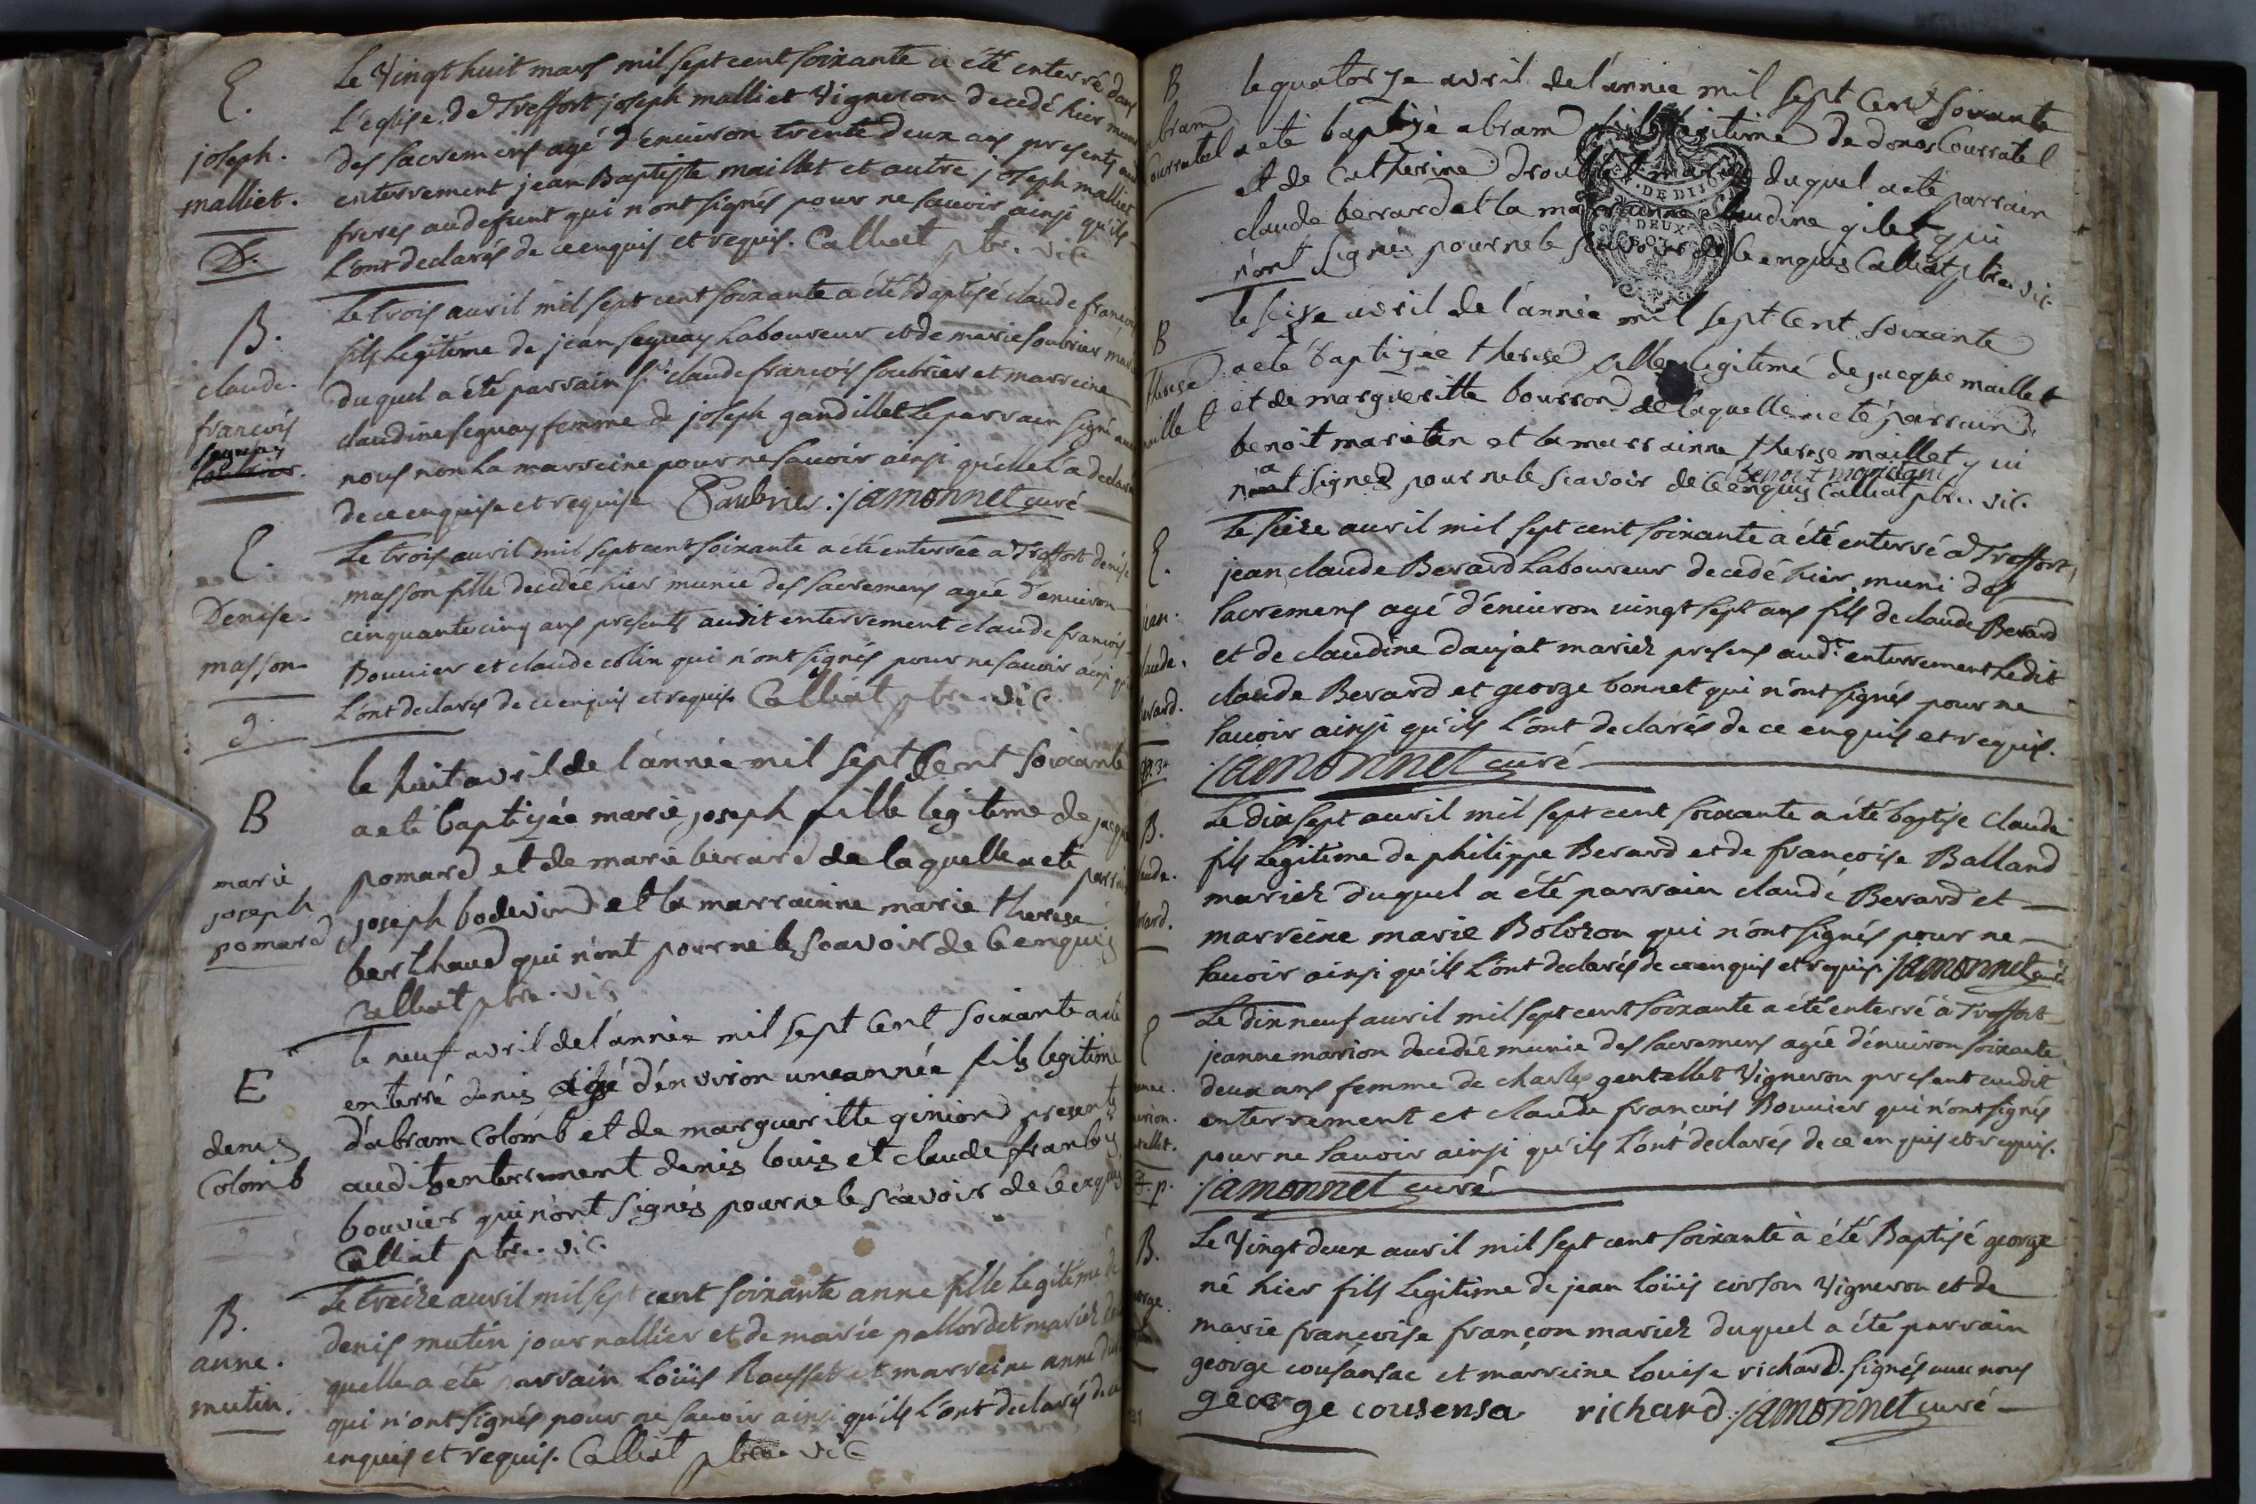 E.
joseph.
malliet.
D.
Le Vingt huit mars mil sept cent soixante a été enterré dans
L'eglise de Treffort joseph malliet Vigneron decedé hier muni
des sacremens agé d'enuiron trente deux ans presents audit
enterrement jean Baptiste maillet et autre joseph malliet
freres audefunt qui n'ont signés pour ne sauoir ainsi qu'ils
L'ont declarés de ce enquis et requis. Calliat ptre. vic
B.
claude.
francois
seguay
soubrier.
Le trois auril mil sept cent soixante a été Baptisé claude francois
fils Legitime de jean seguay Laboureur et de marie soubrier mariés
duquel a été parrain Sr. claude francois soubrier et marreine
claudine seguay femme de joseph gandillet Le parrain signé auec
nous non La marreine pour ne sauoir ainsi qu'elle L'a declaré
de ce enquise et requise Saubrier : jamonnet curé
E.
Denise.
masson
g.
Le trois auril mil sept cent soixante a été enterrée a Treffort denise
masson fille decedée hier munie des sacremens agée d'enuiron
cinquante cinq ans presents audit enterrement claude francois
Bouuier et claude colin qui n'ont signés pour ne sauoir ainsi qu'
L'ont declarés de ce enquis et requis Calliat ptre. vic
B
marie
joseph
pomard
le huit avril de l'année mil sept Cent soixante
a eté baptizée marie joseph fille legitime de jacque
pomard et de marie berard de laquelle a eté parrain
joseph bodevin et la marrainne marie therese
berthaud qui n'ont pour ne le scavoir de ce enquis
Calliat ptre. vic
E
denis
Colomb
le neuf avril de l'année mil sept Cent soixante a eté
enterré denis agé d'environ une année fils legitime
d'abram Colomb et de margueritte ginion presents
audit enterrement denis louis et claude francois
bouvier qui n'ont signés pour ne le scavoir de ce enquis
Calliat ptre. vic
B.
anne.
mutin.
Le treize auril mil sept cent soixante anne fille Legitime de
denis mutin journallier et de marie pallordet mariez de la
quelle a été parrain Loüis Rousset et marreine anne
qui n'ont signés pour ne sauoir ainsi qu'ils L'ont declarés de ce
enquis et requis. Calliat ptre. vic
B
abram
Courratel
le quatorze avril de l'année mil sept Cent soixante
a eté baptizé abram fils legitime de Courratel
et de Catherine duquel a eté parrain
claude berard et la marrainne claudine gilet qui
n'ont signés pour ne le scavoir de ce enquis Calliat ptre. vic.
DE DIJON
DEUX
SOLS
B
therese
maillet
le seize avril de l'année mil sept Cent soixante
a eté baptizée therese fille legitime de jacque maillet
et de margueritte bourson de laquelle a eté parrain
benoit marietan et la marrainne therese maillet qui
n'a signés pour ne le scavoir de ce enquis Calliat ptre. vic.
Benoit
E.
jean.
claude.
Berard.
Le seize auril mil sept cent soixante a été enterré a Treffort
jean claude Berard Laboureur decedé hier muni des
sacremens agé d'enuiron uingt sept ans fils de claude Berard
et de claudine daujat mariez presens audt. enterrement Ledit
claude Berard et george bonnet qui n'ont signés pour ne
sauoir ainsi qu'ils L'ont declarés de ce enquis et requis.
jamonnet curé
B.
claude.
Berard.
Le dix sept auril mil sept cent soixante a été baptisé claude
fils Legitime de philippe Berard et de françoise Balland
mariez duquel a été parrain claude Berard et
marreine marie Bolozon qui n'ont signés pour ne
sauoir ainsi qu'ils L'ont declarés de ce enquis et requis jamonnet curé
E
jeanne.
marion.
gentellet.
Le dix neuf auril mil sept cent soixante a été enterré à Treffort
jeanne marion decedée munie des sacremens agée d'enuiron soixante
deux ans femme de charles gentellet Vigneron present audit
enterrement et claude francois Bouuier qui n'ont signés
pour ne sauoir ainsi qu'ils L'ont declarés de ce enquis et requis.
jamonnet curé
B.
george.
Le Vingt deux auril mil sept cent soixante à été Baptisé george
né hier fils Legitime de jean Loüis corson Vigneron et de
marie françoise françon mariez duquel a été parrain
george cousansac et marreine Louise richard signés auec nous
george cousensa richard jamonnet curé